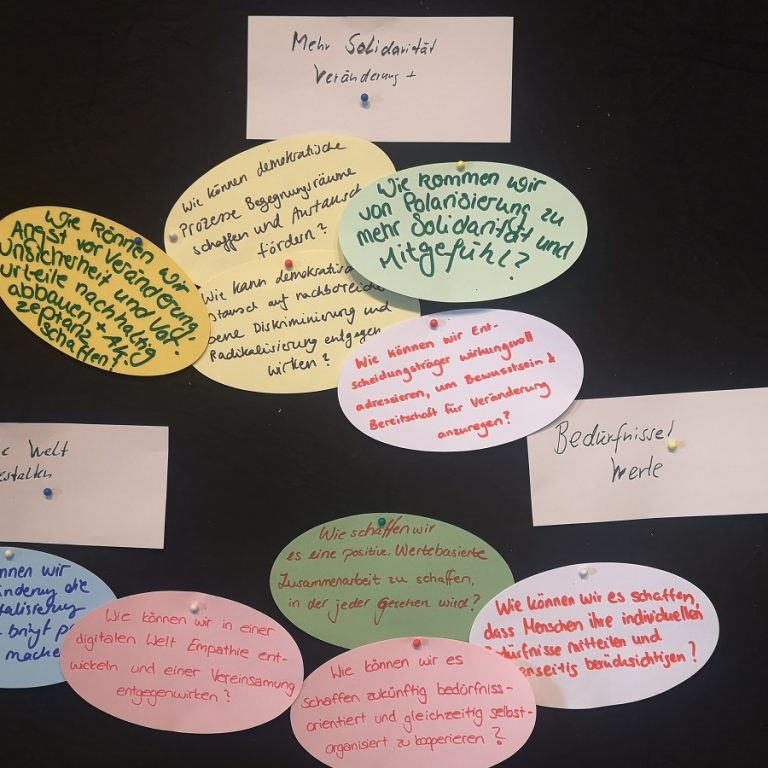 Mehr Solidarität
Veränderung +
Wie können demokratische
Prozesse Begegnungsräume
schaffen und Austausch
fördern?
Wie kommen wir
von Polarisierung zu
mehr Solidarität und
Mitgefühl?
Wie können wir
Angst vor Veränderung,
Unsicherheit und Vor-
urteile nachhaltig
abbauen + Ak-
zeptanz
schaffen?
Wie kann demokratisch
stausch auf nachbarschaf
bene Diskriminierung und
Radikalisierung entgegen
wirken?
Wie können wir Ent-
scheidungsträger wirkungsvoll
adressieren, um Bewusstsein &
Bereitschaft für Veränderung
anzuregen?
Welt
estalten
Bedürfnisse/
Werte
nnen wir
änderung die
talisierung
bringt
mache
Wie können wir in einer
digitalen Welt Empathie ent-
wickeln und einer Vereinsamung
entgegenwirken?
Wie schaffen wir
es eine positive, Wertebasierte
Zusammenarbeit zu schaffen,
in der jeder Gesehen wird?
Wie können wir es schaffen,
dass Menschen ihre individuellen
Bedürfnisse mitteilen und
enseitig berücksichtigen?
Wie können wir es
schaffen zukünftig bedürfniss-
orientiert und gleichzeitig selbst-
organisiert zu kooperieren?